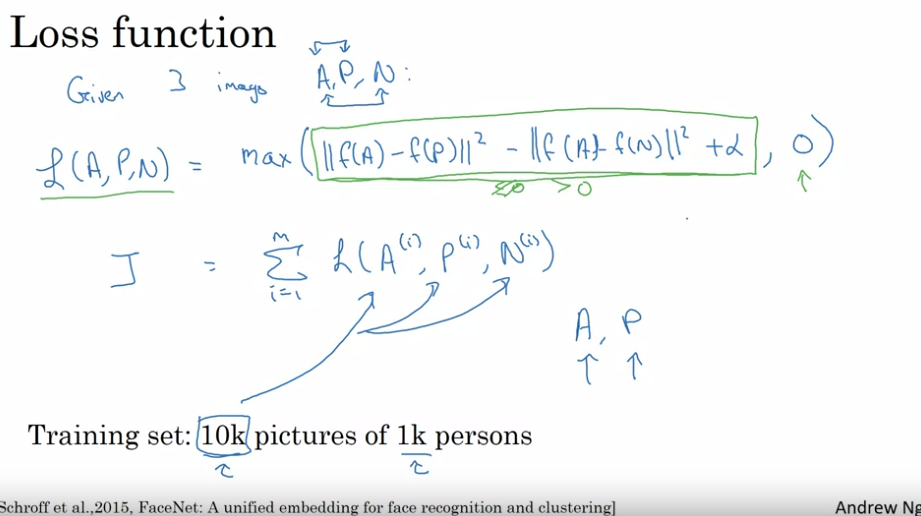 Loss function
Given 3 images A, P, N:
L(A,P,N) = max(||f(A) - f(P)||² - ||f(A) - f(N)||² + α, 0)
≤0 >0
J = Σ_{i=1}^{m} L(A^{(i)}, P^{(i)}, N^{(i)})
A, P
Training set: 10k pictures of 1k persons
Schroff et al.,2015, FaceNet: A unified embedding for face recognition and clustering] Andrew Ng